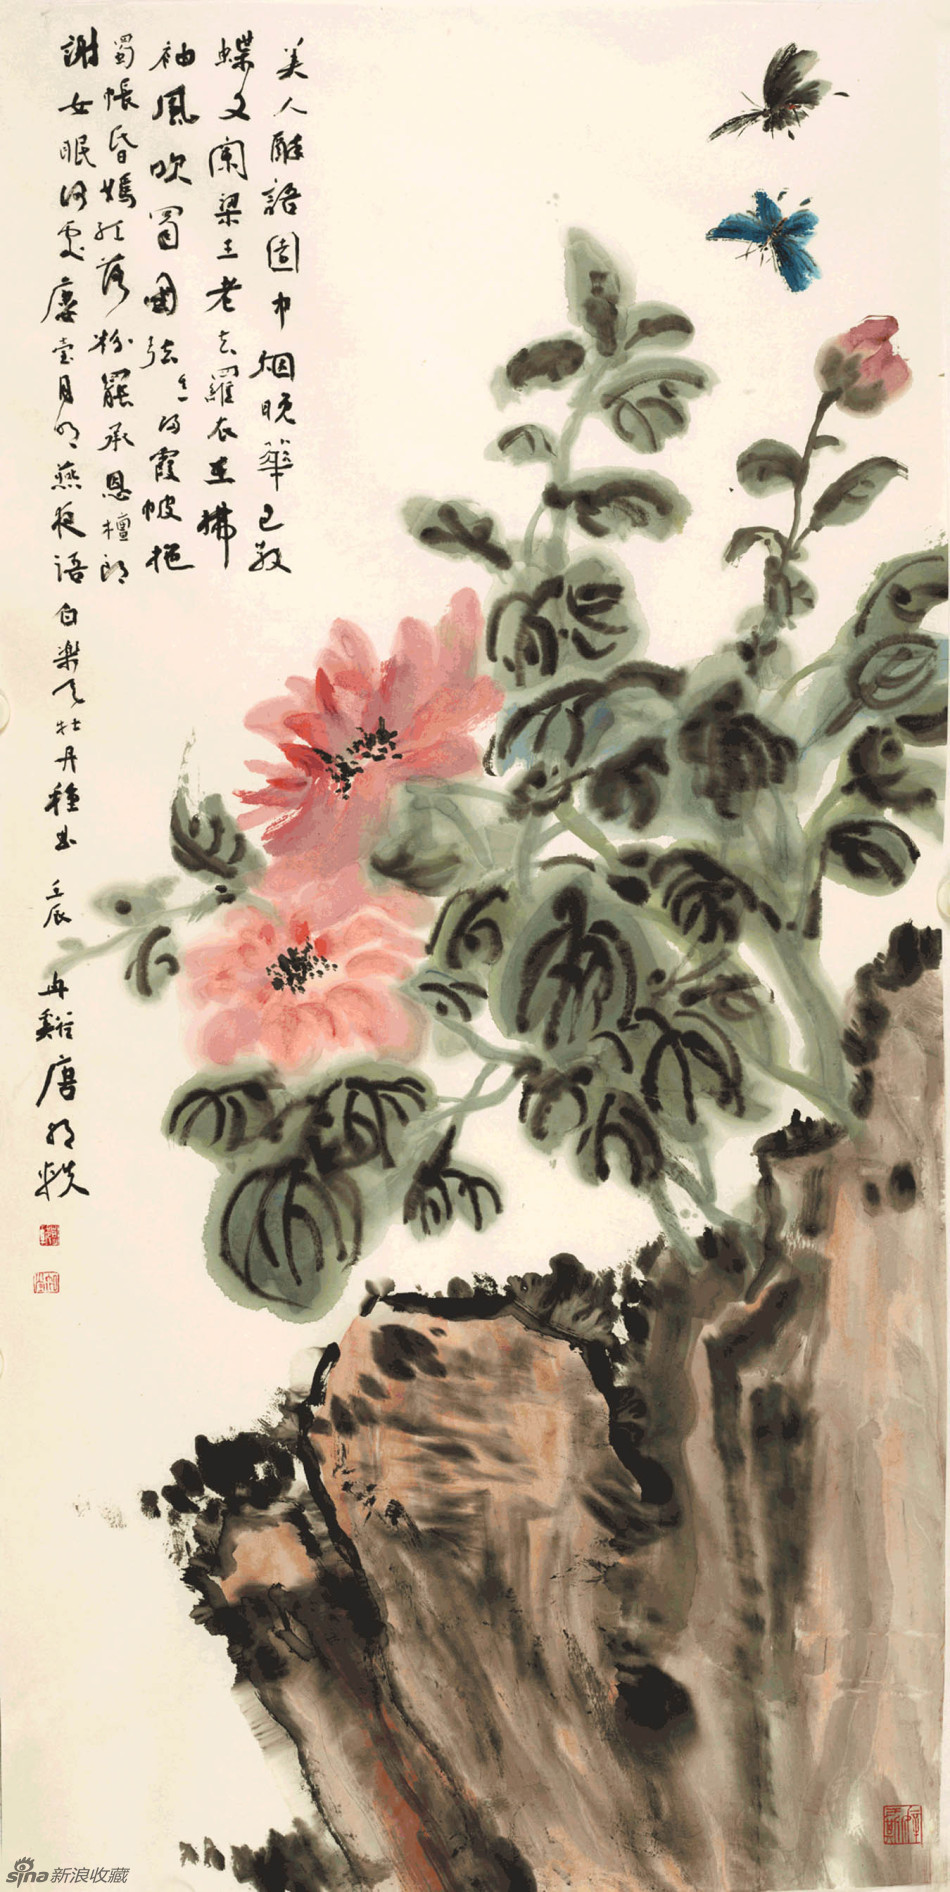 美人酔語園中烟晚華已散
蝶又闌梁王老去羅衣在拂
袖風吹蜀國弦歸霞帔拖
蜀帳昏嫣紅落粉罷承恩檀郎
謝女眠何處廔臺月明燕夜語 白樂天牡丹種曲 壬辰 唐明
sina 新浪收藏